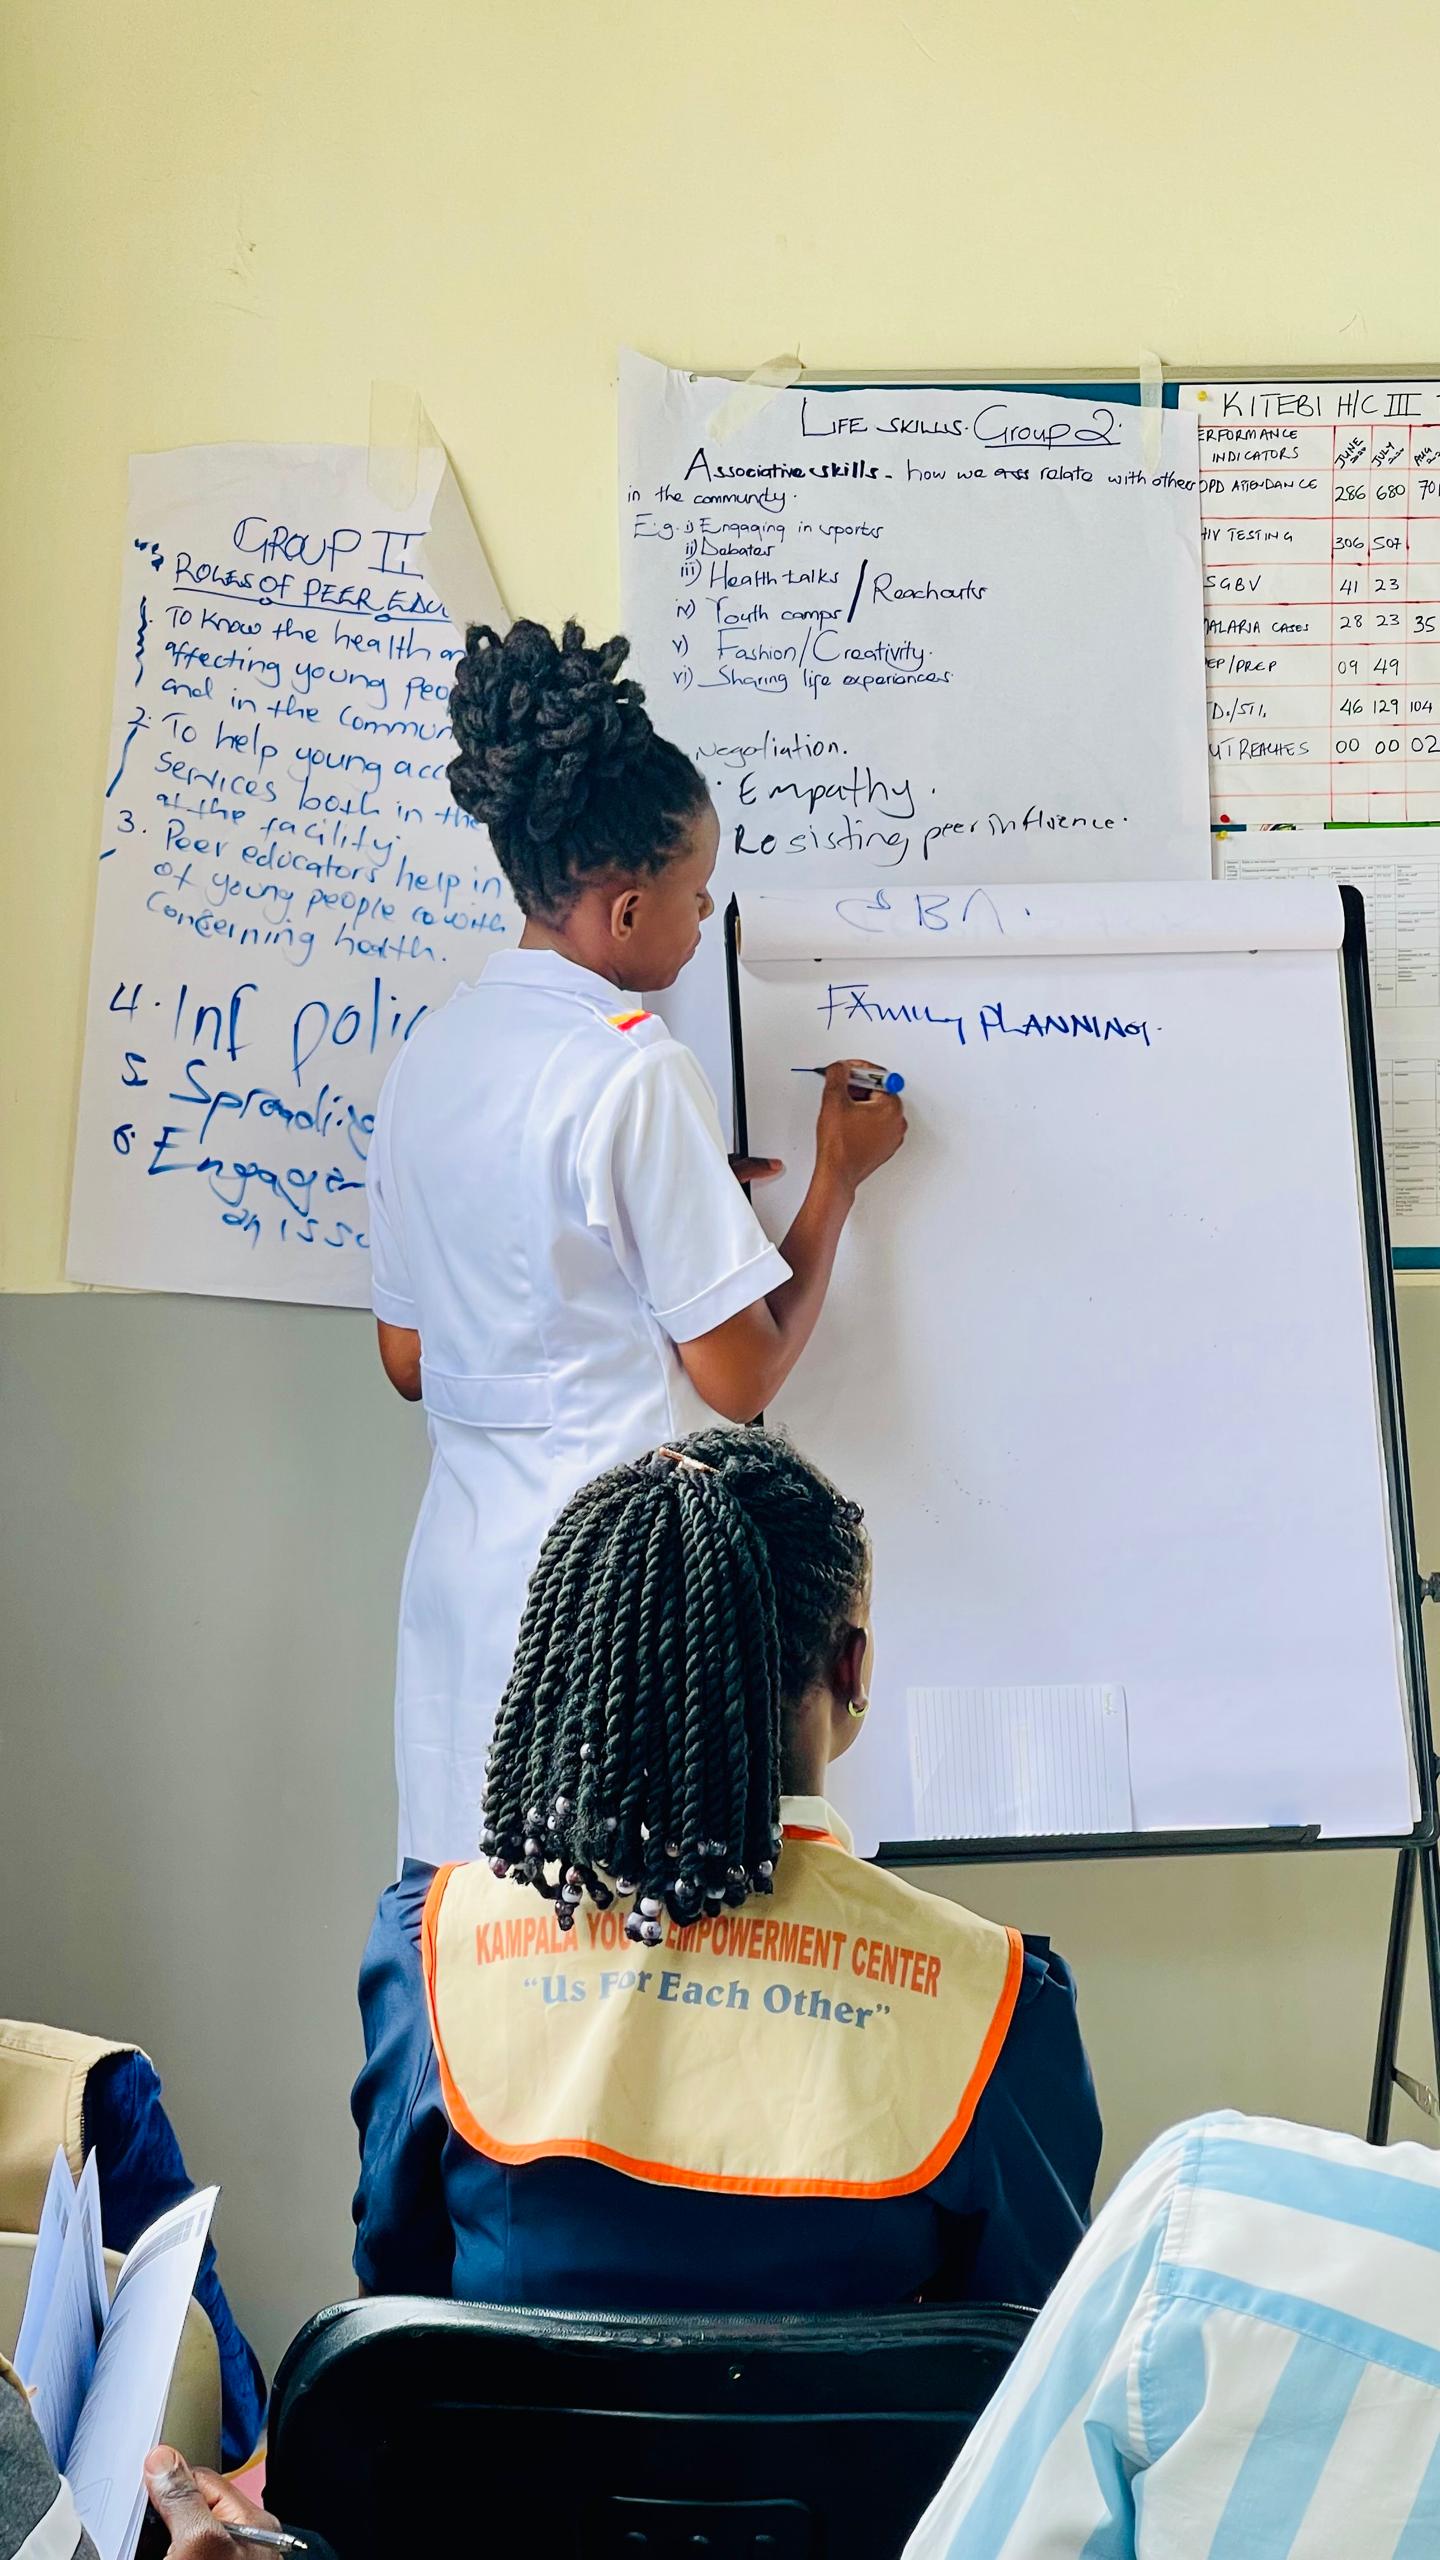 GROUP II
ROLES OF PEER EDU
1. To know the health
affecting young peo
and in the commun
2. To help young acc
services both in the
at the facility
3. Peer educators help in
of young people
concerning health.
4. Inf polic
5 Spreading
6. Engage
on issu
LIFE SKILLS. Group 2.
Associative skills - how we relate with others
in the community.
E.g. i) Engaging in sports
ii) Debates
iii) Health talks / Reachouts
iv) Youth camps
v) Fashion/Creativity.
vi) Sharing life experiences.
Negotiation.
Empathy.
Resisting peer influence.
KITEBI H/C III
ERFORMANCE INDICATORS JUNE JULY AUG
OPD ATTENDANCE 286 680 701
HIV TESTING 306 507
SGBV 41 23
MALARIA CASES 28 23 35
EP/PREP 09 49
D./STI. 46 129 104
UTREACHES 00 00 02
FAMILY PLANNING.
KAMPALA YOU EMPOWERMENT CENTER
"Us For Each Other"